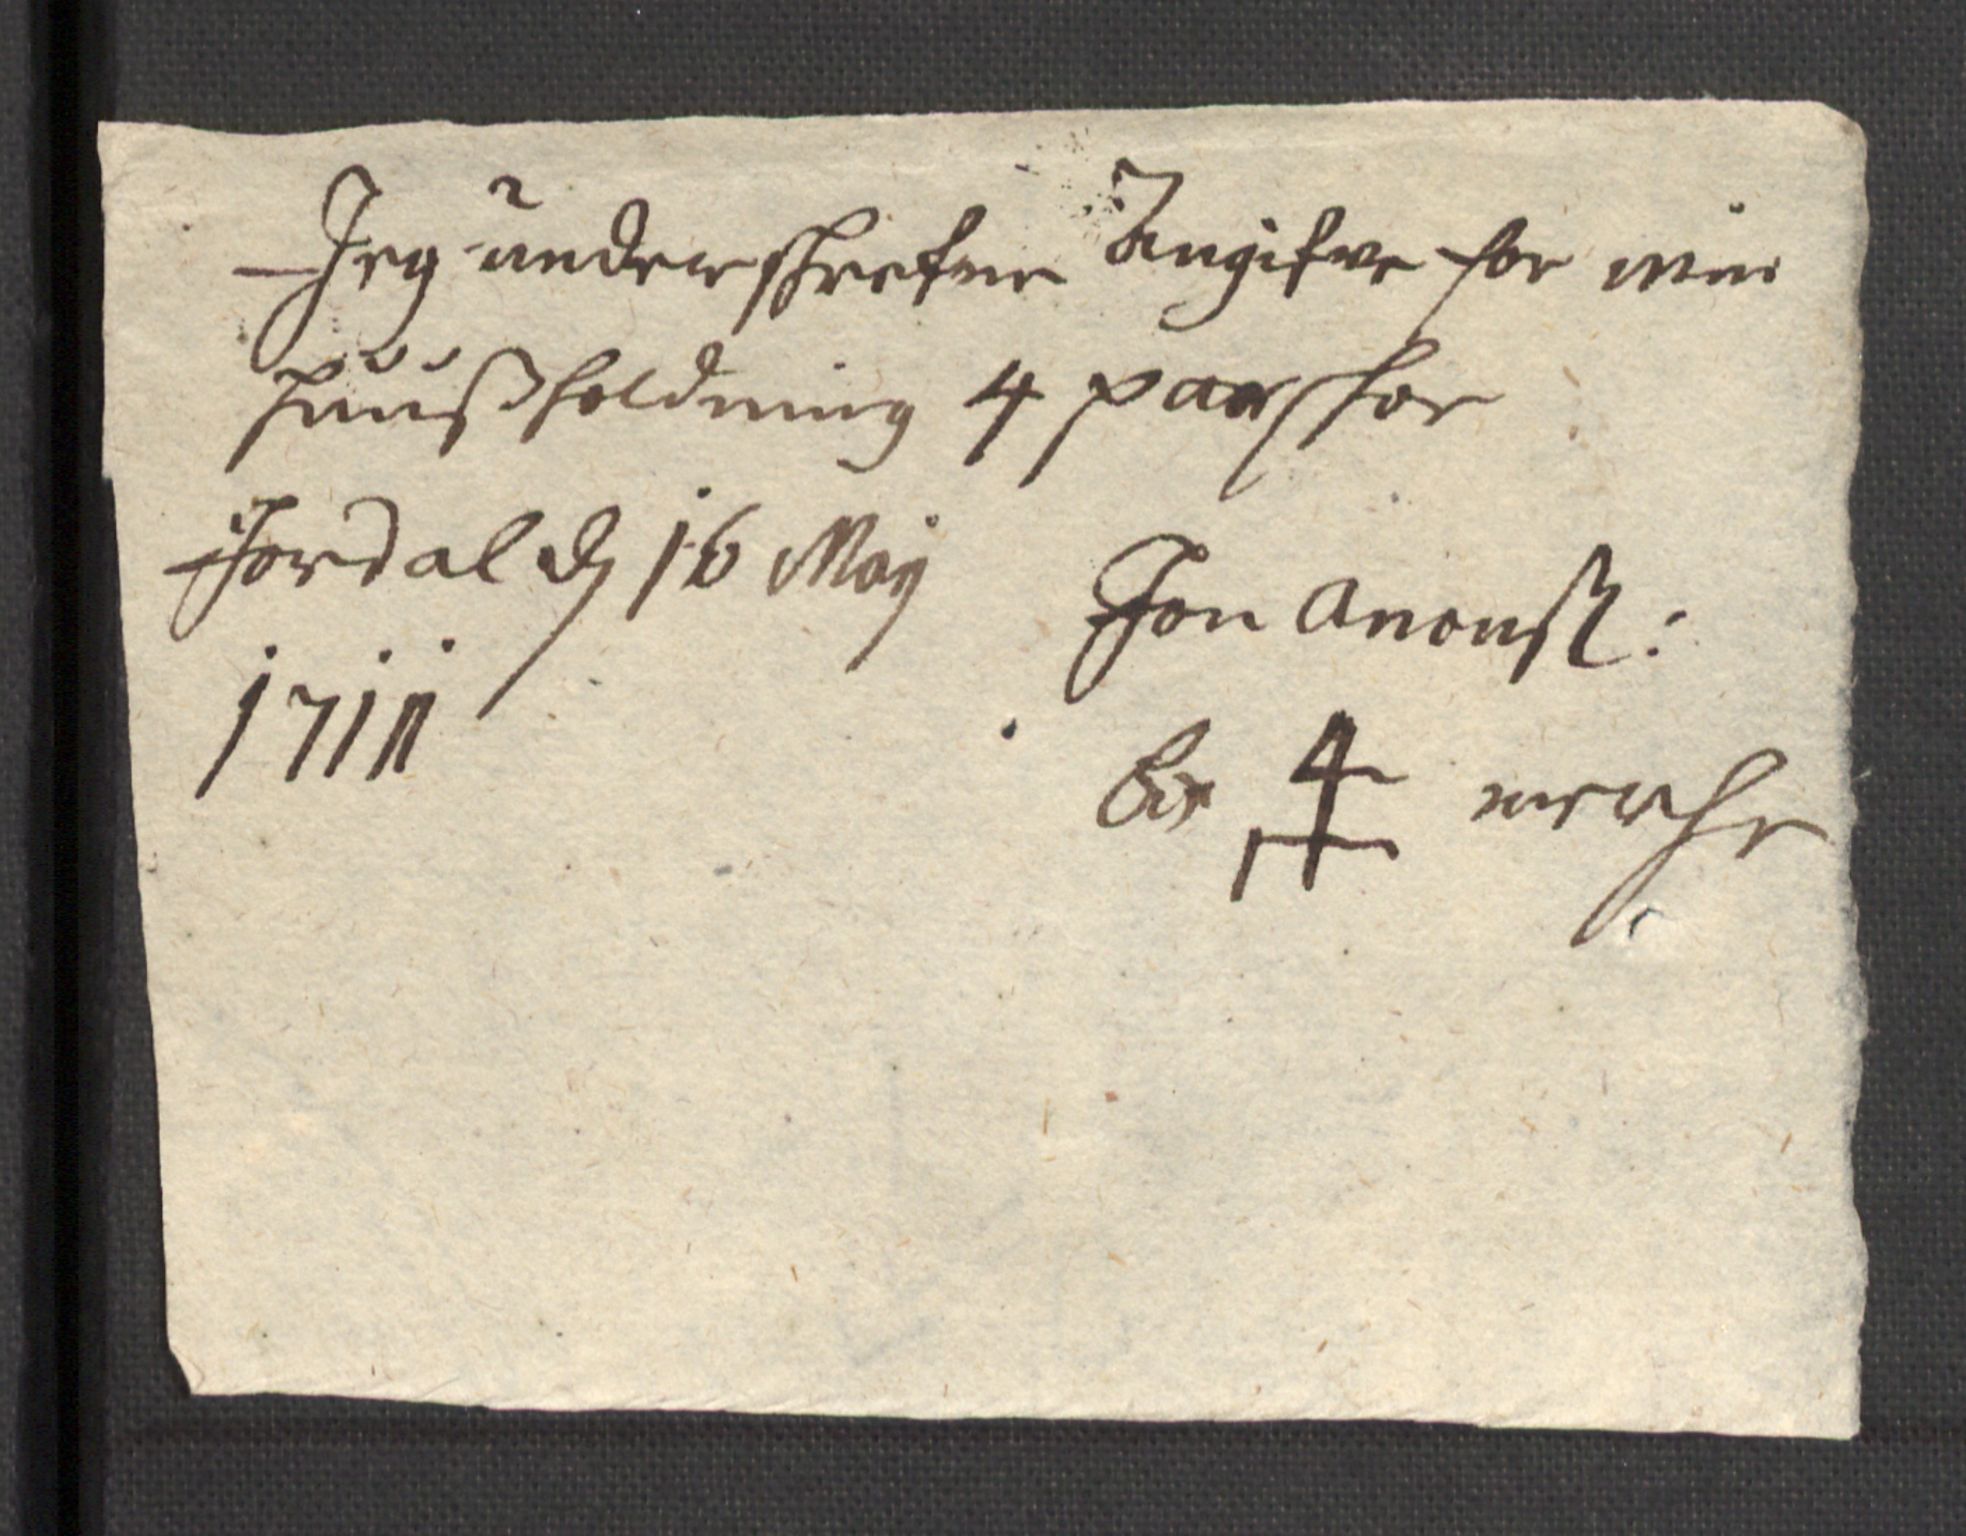 Jeg underschrefne Angifver for min
huusholdning 4 par schoe
Jordal d 16 Maij
1711
Jon Anonss:
bo mercke